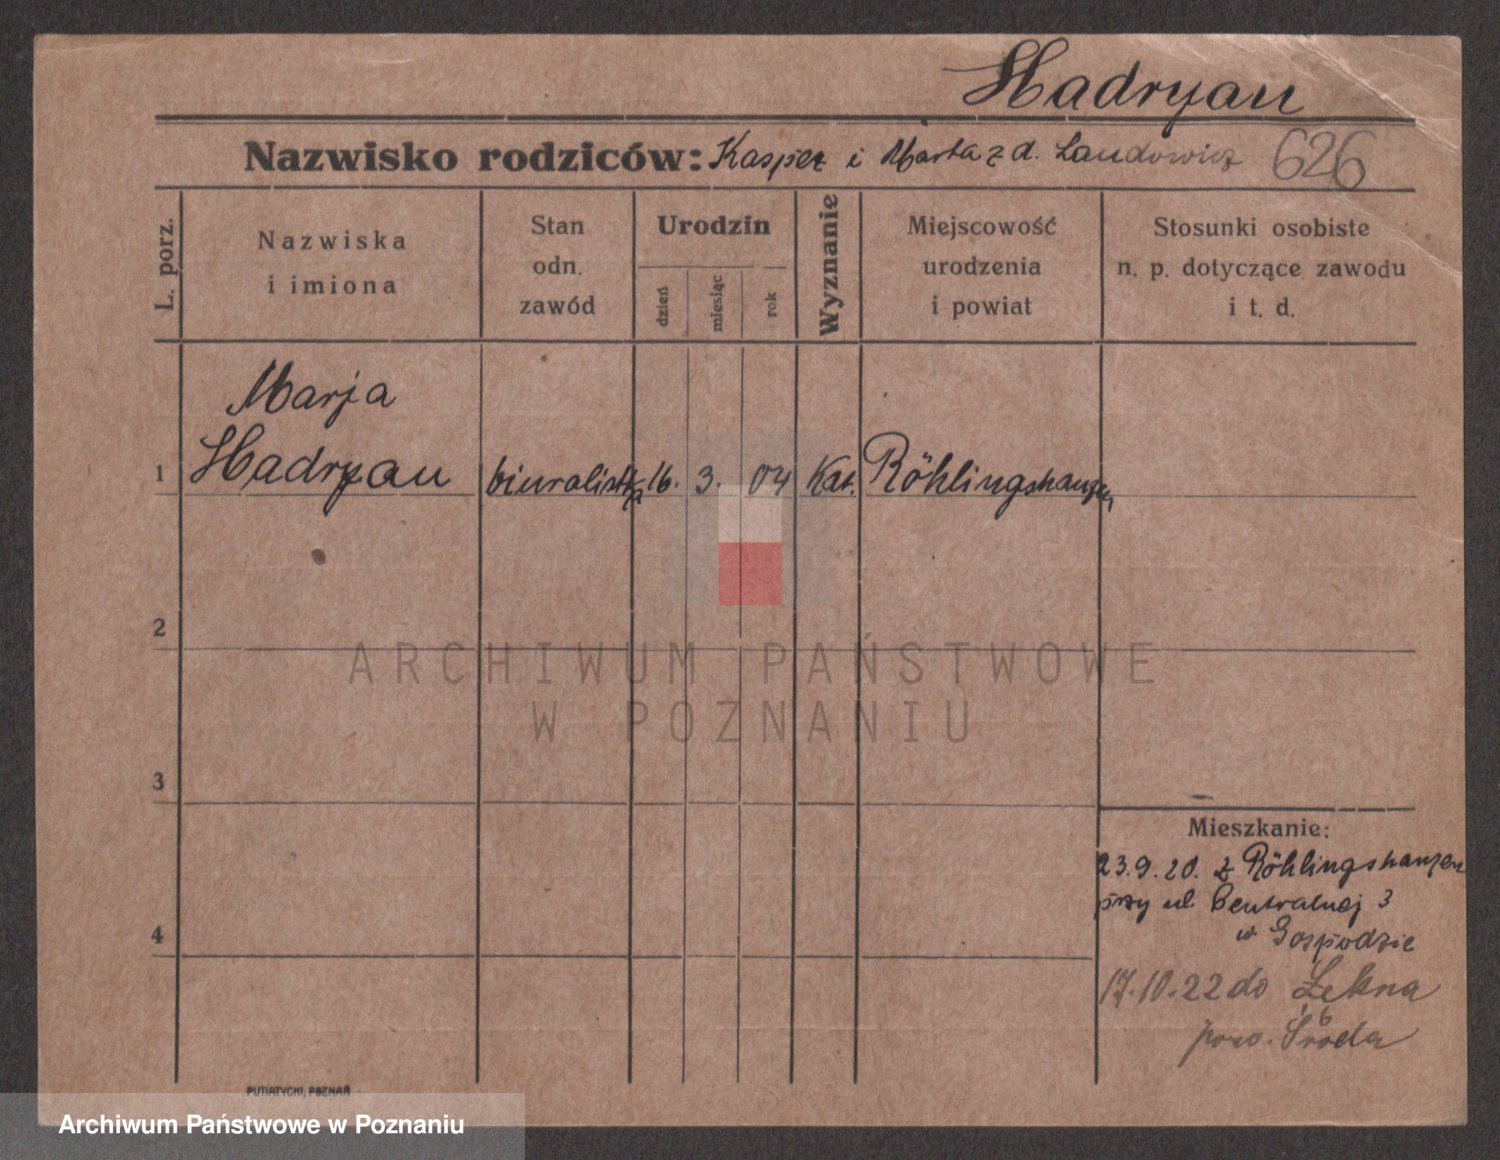 Hadryan
Nazwisko rodziców: Kasper i Marta z d. Landowicz 626
L. porz.
Nazwiska
i imiona
Stan
odn.
zawód
Urodzin
dzień
miesiąc
rok
Wyznanie
Miejscowość
urodzenia
i powiat
Stosunki osobiste
n. p. dotyczące zawodu
i t. d.
Marja
1 Hadryan biuralistka 16. 3. 04 Kat. Röhlingshausen
2
3
4
Mieszkanie:
23.9.20. z Röhlingshausen
przy ul. Centralnej 3
w Gospodzie
17.10.22 do Łękna
pow. Środa
PUTIATYCKI, POZNAŃ
ARCHIWUM PAŃSTWOWE
W POZNANIU
Archiwum Państwowe w Poznaniu